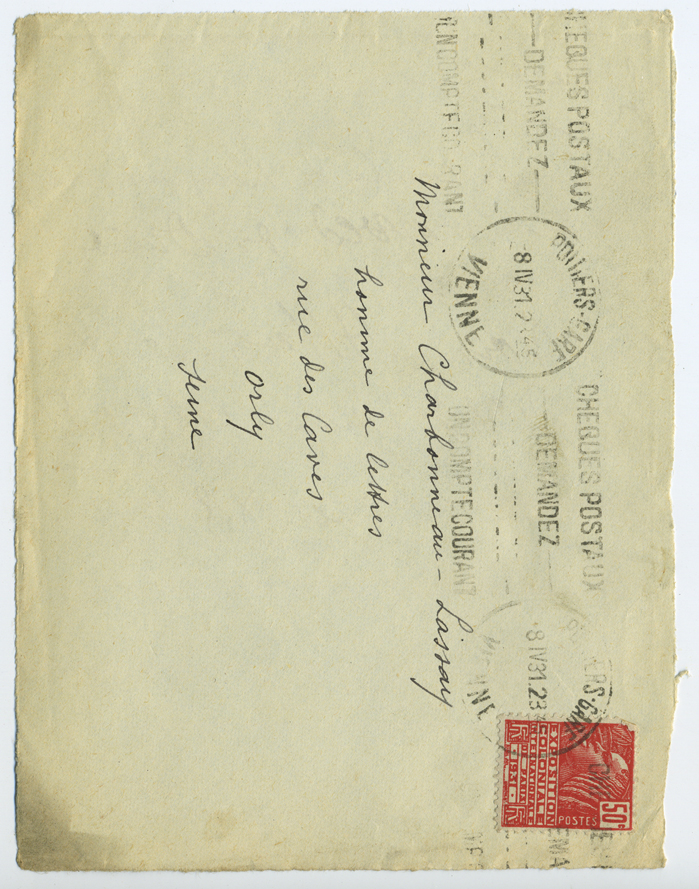 CHEQUES POSTAUX
DEMANDEZ
UN COMPTE COURANT
POITIERS-GARE
8 IV 31
VIENNE
CHEQUES POSTAUX
DEMANDEZ
UN COMPTE COURANT
POITIERS-GARE
8 IV 31. 23
VIENNE
50c
POSTES
EXPOSITION
COLONIALE
INTERNATIONALE
DE PARIS
1931
RF
RF
Monsieur Charbonneau-Lassay
homme de lettres
rue des Caves
Orly
Seine